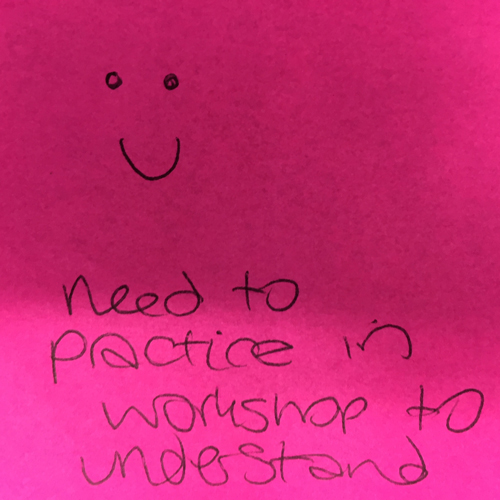 need to
practice in
workshop to
understand